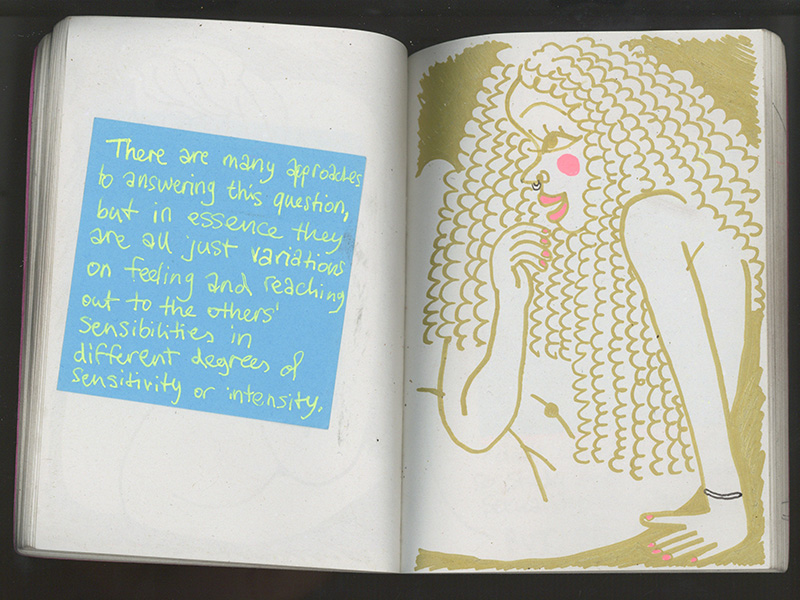 There are many approaches
to answering this question,
but in essence they
are all just variations
on feeling and reaching
out to the others'
sensibilities in
different degrees of
sensitivity or intensity.